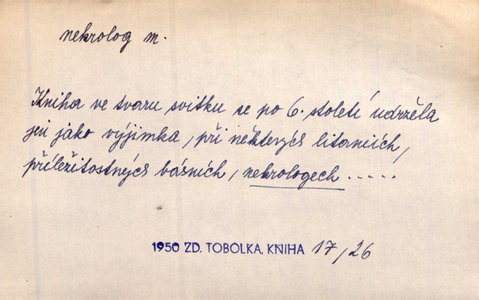 nekrolog m.
Kniha ve tvaru svitku se po 6. století udržela
jen jako výjimka, při některých litaniích,
příležitostných básních, nekrologech .....
1950 ZD. TOBOLKA, KNIHA 17/26